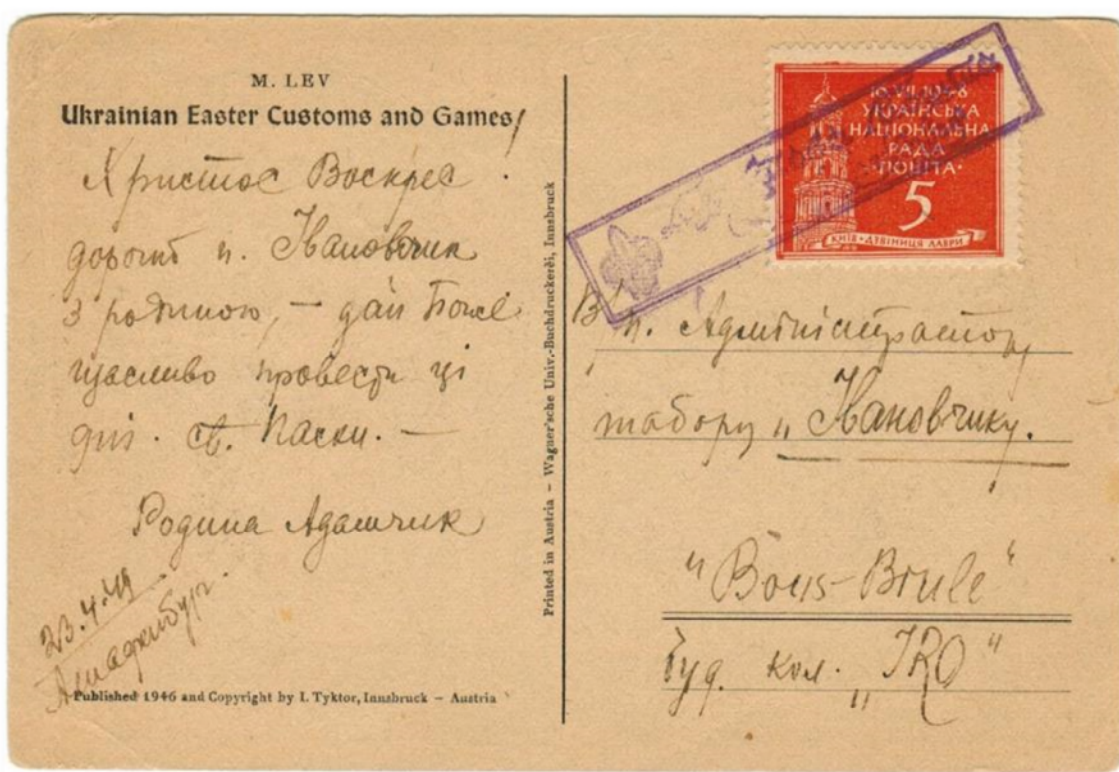 M. LEV
Ukrainian Easter Customs and Games
Христос Воскрес!
дорогий п. Івановчик
з родиною, — дай Боже
щасливо провести ці
дні. св. Паски. —
Родина Адамчик
23.4.49
Ашафенбург.
Published 1946 and Copyright by I. Tyktor, Innsbruck – Austria
Printed in Austria – Wagner'sche Univ.-Buchdruckerei, Innsbruck
16.VII.1948
УКРАЇНСЬКА
НАЦІОНАЛЬНА
РАДА
ПОШТА
5
КИЇВ • ДЗВІНИЦЯ ЛАВРИ
В. п. Адміністратору
табору „Івановчику.
"Bois-Brule"
буд. кол. „IRO"